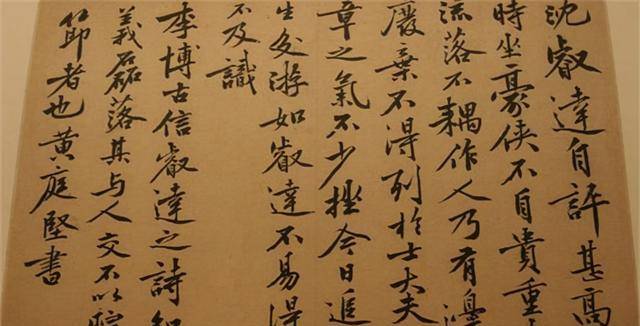 沈叡達自許甚高
時坐豪俠不自貴重
流落不耦作人乃有
廢棄不得列於士大夫
章之氣不少挫今日追
生交游如叡達不易得
不及識
李博古信叡達之詩
義磊落其與人交不以
節者也黃庭堅書